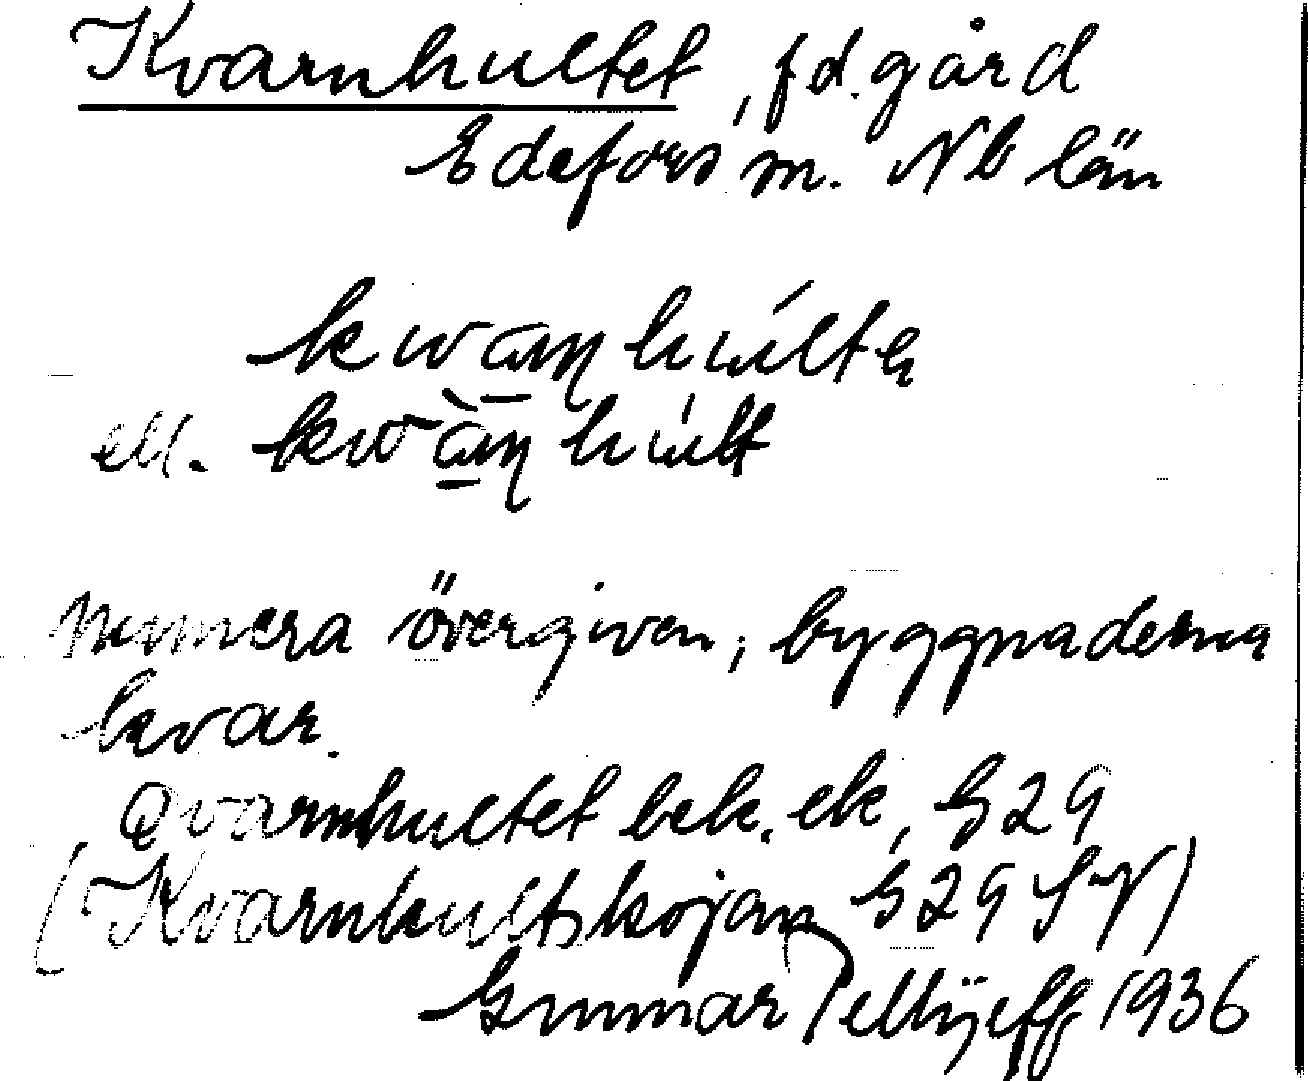 Kvarnhultet, fd. gård
Edefors sn. Nb län
kwa̲ṇhúltẹ
ell. kwà̲ṇhúlt
Numera övergiven; byggnaderna
kvar.
Qvarnhultet bek. ek, S29
(Kvarnhultskojan S29 SV)
Gunnar Pellijeff 1936